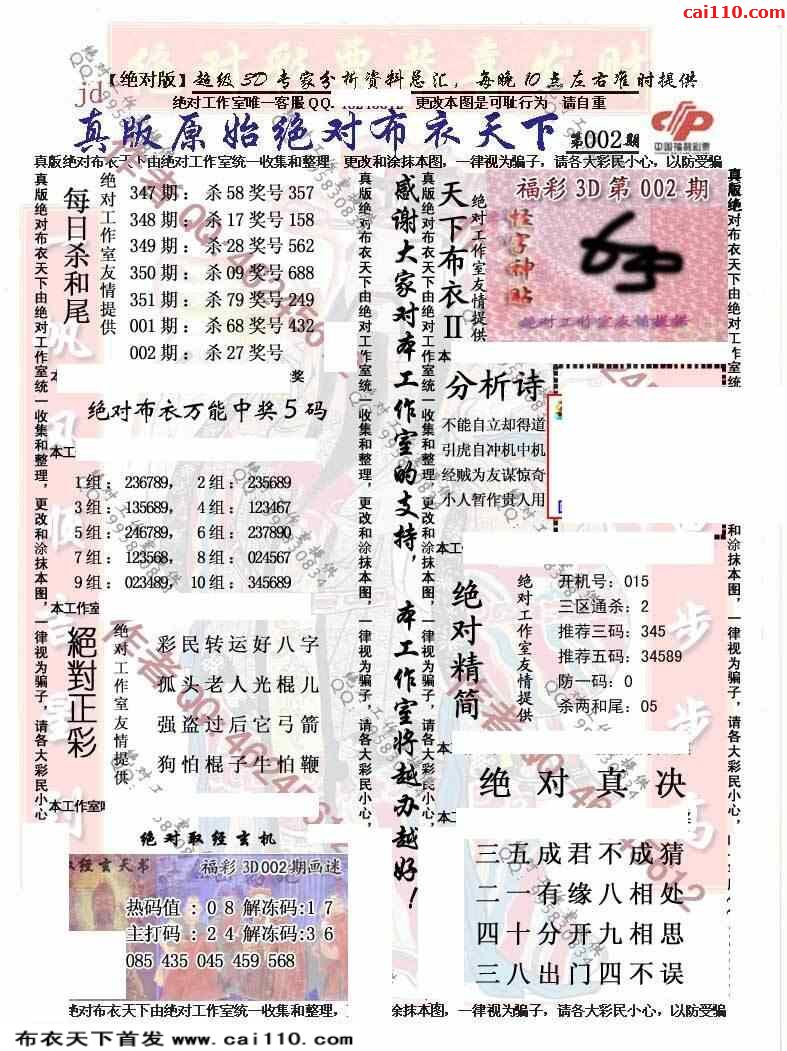 cai110.com
【绝对版】超级3D专家分析资料总汇，每晚10点左右准时提供
jd
绝对工作室唯一客服QQ. 更改本图是可耻行为 请自重
真版原始绝对布衣天下 第002期
中国福利彩票
真版绝对布衣天下由绝对工作室统一收集和整理，更改和涂抹本图，一律视为骗子，请各大彩民小心，以防受骗
真版绝对布衣天下由绝对工作室统一收集和整理，更改和涂抹本图，一律视为骗子，请各大彩民小心，
每日杀和尾
绝对工作室友情提供
347期：杀58奖号357
348期：杀17奖号158
349期：杀28奖号562
350期：杀09奖号688
351期：杀79奖号249
001期：杀68奖号432
002期：杀27奖号
奖
绝对布衣万能中奖5码
本工
1组：236789， 2组：235689
3组：135689， 4组：123467
5组：246789， 6组：237890
7组：123568， 8组：024567
9组：023489， 10组：345689
本工作室
絕對正彩
绝对工作室友情提供
彩民转运好八字
孤头老人光棍儿
强盗过后它弓箭
狗怕棍子牛怕鞭
本工作室
绝对取经玄机
取经玄天书 福彩3D002期画迷
热码值：08解冻码:17
主打码：24解冻码:36
085 435 045 459 568
真版绝对布衣天下由绝对工作室统一收集和整理，更改和涂抹本图，一律视为骗子，请各大彩民小心，
感谢大家对本工作室的支持，本工作室将越办越好！
真版绝对布衣天下由绝对工作室统一收集和整理，更改和涂抹本图，一律视为骗子，请各大彩民小心，
天下布衣II
绝对工作室友情提供
福彩3D第002期
怪字神贴
绝对工作室友情提供
本
分析诗
不能自立却得道
引虎自冲机中机
经贼为友谋惊奇
小人暂作贵人用
本工
绝对精简
绝对工作室友情提供
开机号：015
三区通杀：2
推荐三码：345
推荐五码：34589
防一码：0
杀两和尾：05
本
绝对真决
三五成君不成猜
二一有缘八相处
四十分开九相思
三八出门四不误
真版绝对布衣天下由绝对工作室统一
和涂抹本图，一律视为骗子，请各大彩民小心，
绝对布衣天下由绝对工作室统一收集和整理，
涂抹本图，一律视为骗子，请各大彩民小心，以防受骗
布衣天下首发 www.cai110.com